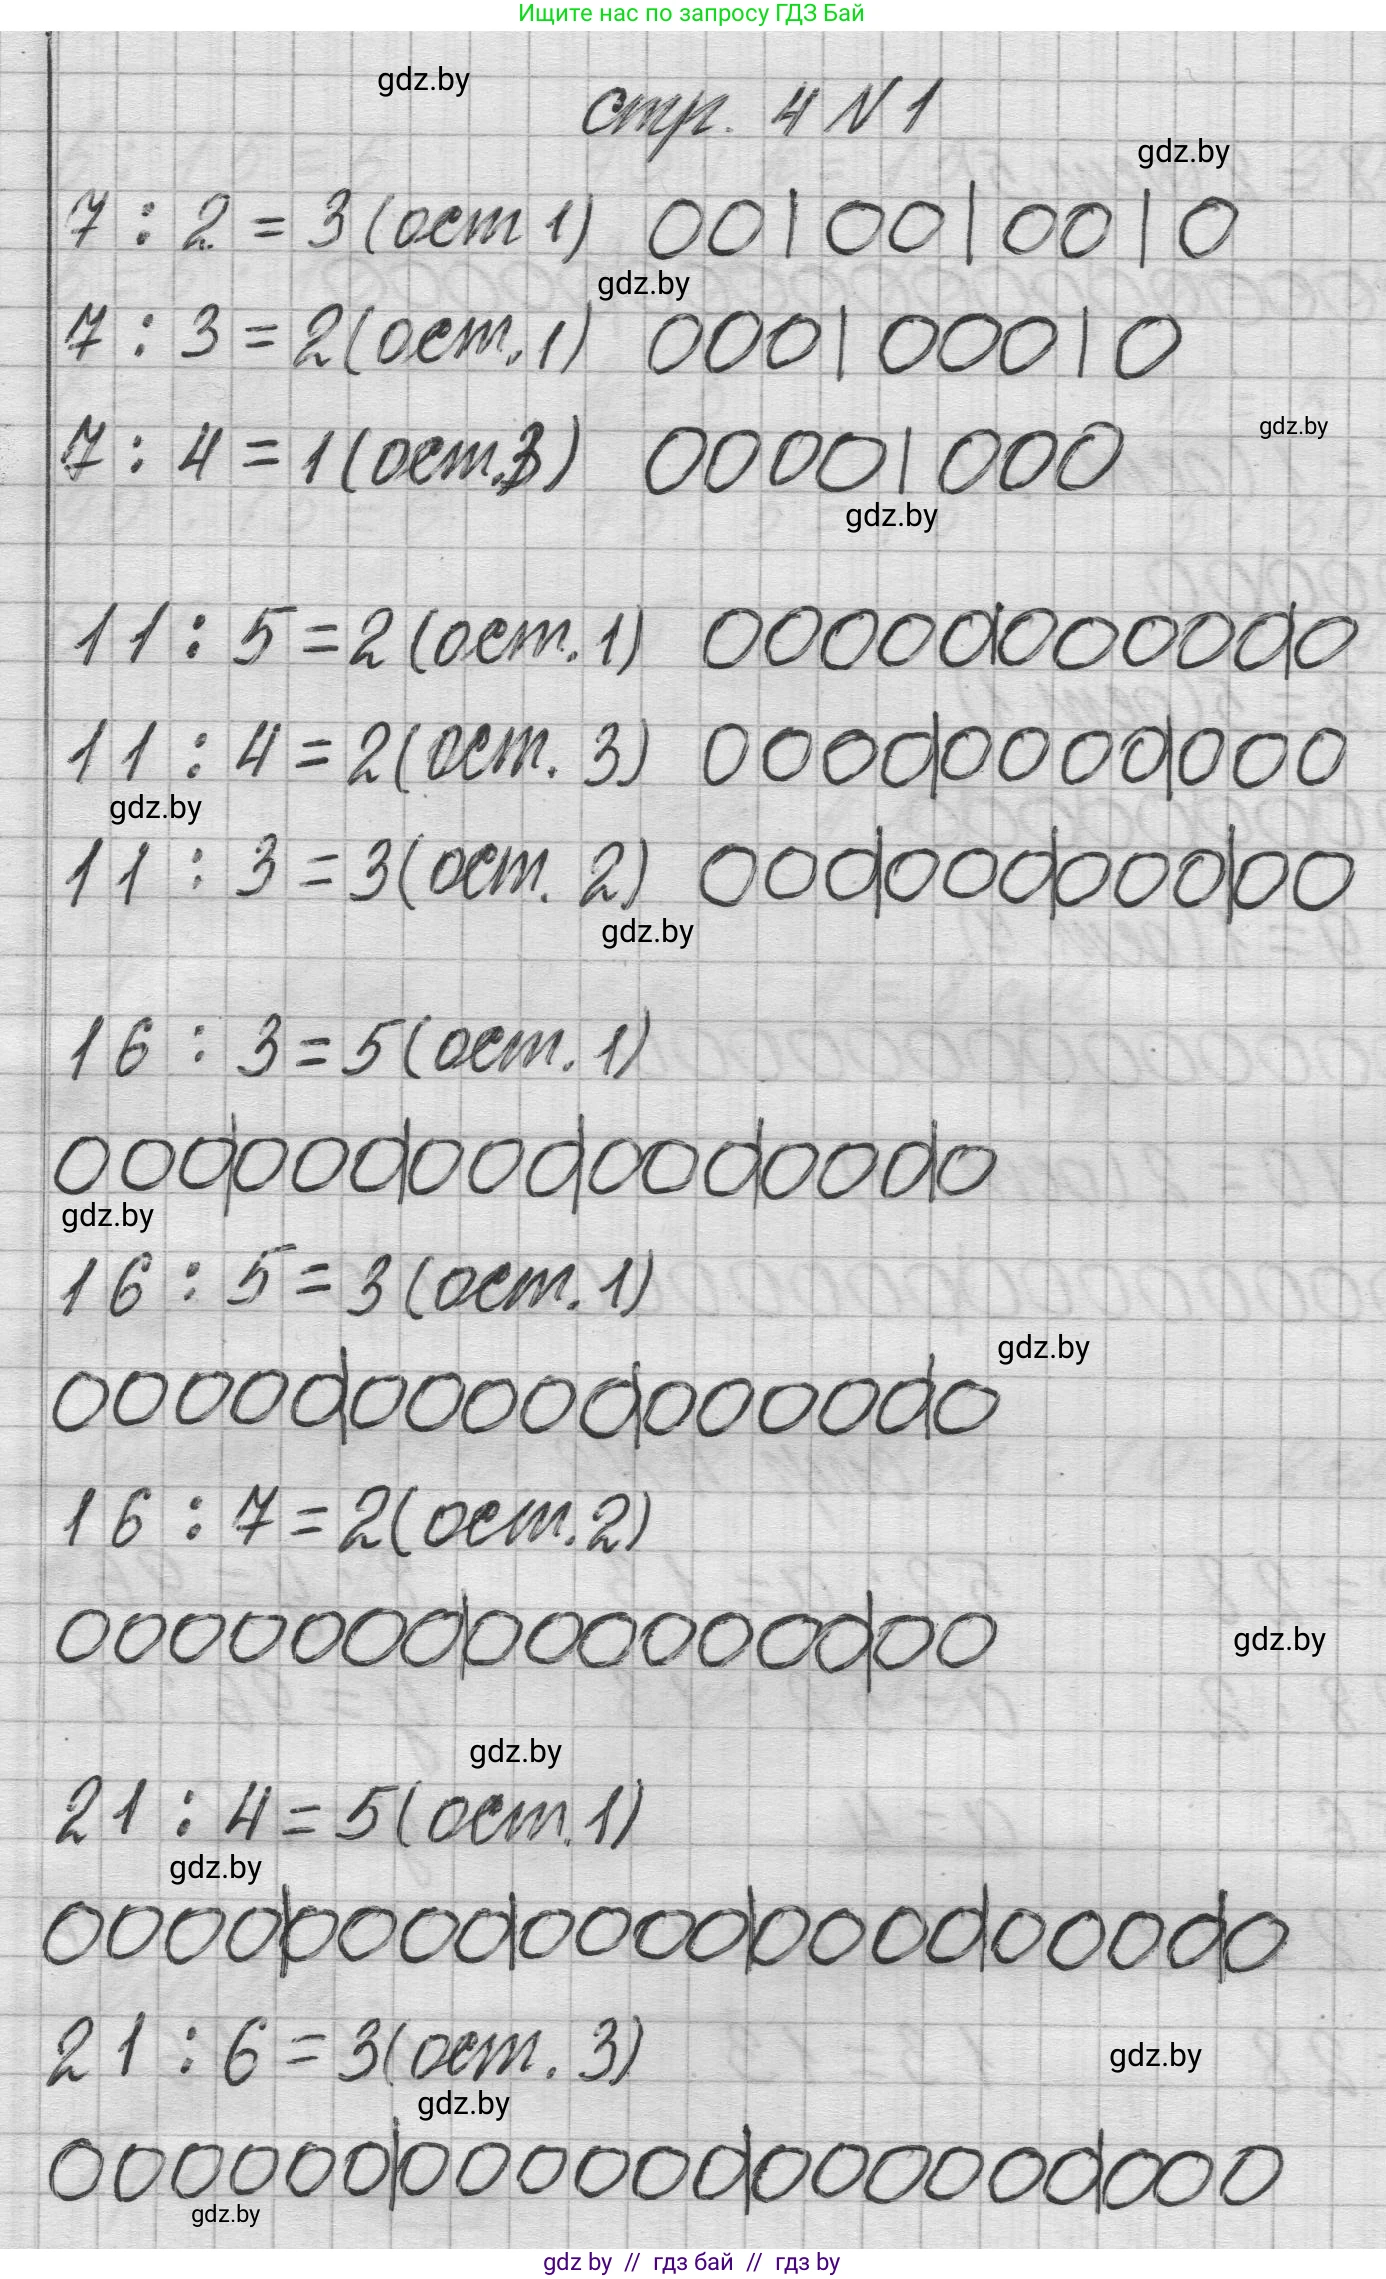 Ищите нас по запросу ГДЗ Бай
gdz.by
стр. 4 N 1
gdz.by
7 : 2 = 3 (ост 1) 00|00|00|0
gdz.by
7 : 3 = 2 (ост. 1) 000|000|0
7 : 4 = 1 (ост. 3) 0000|000
gdz.by
gdz.by
11 : 5 = 2 (ост. 1) 00000|00000|0
11 : 4 = 2 (ост. 3) 0000|0000|000
gdz.by
11 : 3 = 3 (ост. 2) 000|000|000|00
gdz.by
16 : 3 = 5 (ост. 1)
000|000|000|000|000|0
gdz.by
16 : 5 = 3 (ост. 1)
gdz.by
00000|00000|00000|0
16 : 7 = 2 (ост. 2)
0000000|0000000|00
gdz.by
gdz.by
21 : 4 = 5 (ост. 1)
gdz.by
0000|0000|0000|0000|0000|0
21 : 6 = 3 (ост. 3)
gdz.by
gdz.by
000000|000000|000000|000
gdz.by
gdz by // гдз бай // гдз by